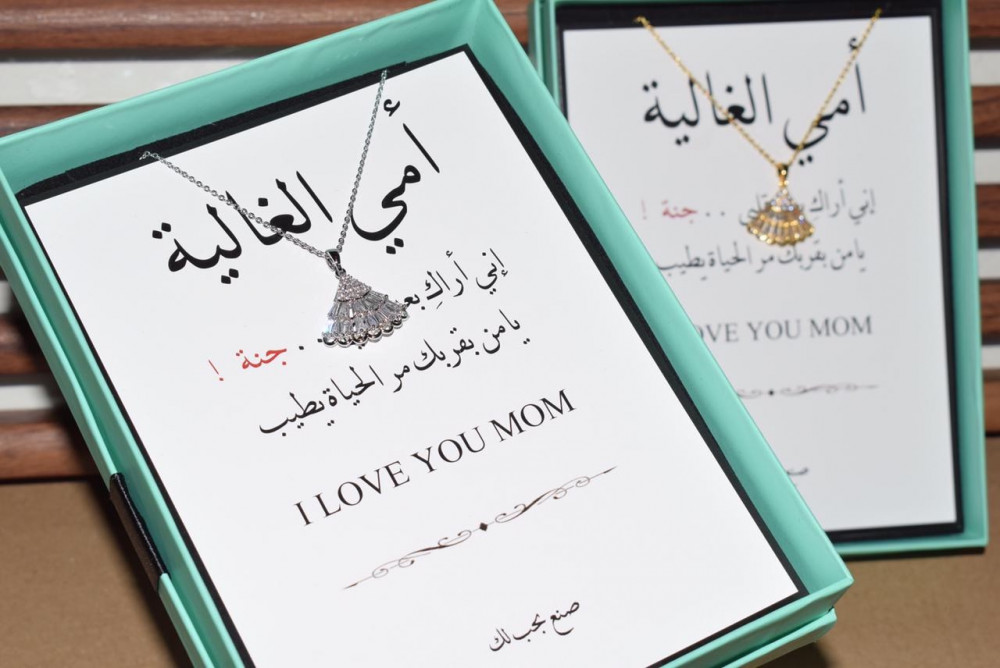 أمي الغالية
إني أراكِ . جنة !
يا من بقربك مر الحياة يطيب
I LOVE YOU MOM
صنع بحب لك
أمي الغالية
إني أراكِ . . جنة !
يا من بقربك مر الحياة يطيب
LOVE YOU MOM